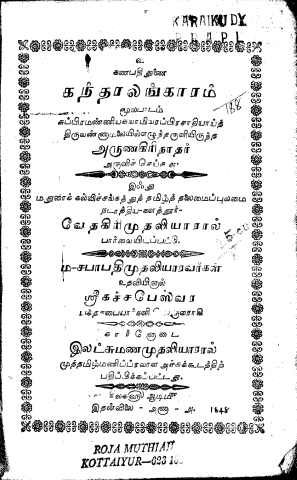 KARAIKUDY
உ
கணபதி துணை
கந்தரலங்காரம்
மூலபாடம்
சுப்பிரமணியசுவாமிவரப்பிரசாதியாய்த்
திருவண்ணாமலையில்எழுந்தருளியிருந்த
அருணகிரிநாதர்
அருளிச் செய்தது.
இஃது
மதுரைக் கல்விச்சங்கத்துத் தமிழ்த் தலைமைப்புலமை
நடாத்திய களத்தூர்
வேதகிரிமுதலியாரால்
பார்வையிடப்பட்டு
சபாபதிமுதலியாரவர்கள்
உதவியினால்
ஸ்ரீகச்சபேஸ்வர
இலட்சுமணமுதலியாரால்
முத்தமிழ்மணிப்பிரவாள அச்சுக்கூடத்திற்
பதிப்பிக்கப்பட்டது.
இதன்விலை - அணா - 1848
ROJA MUTHIAH
KOTTAIYUR—623